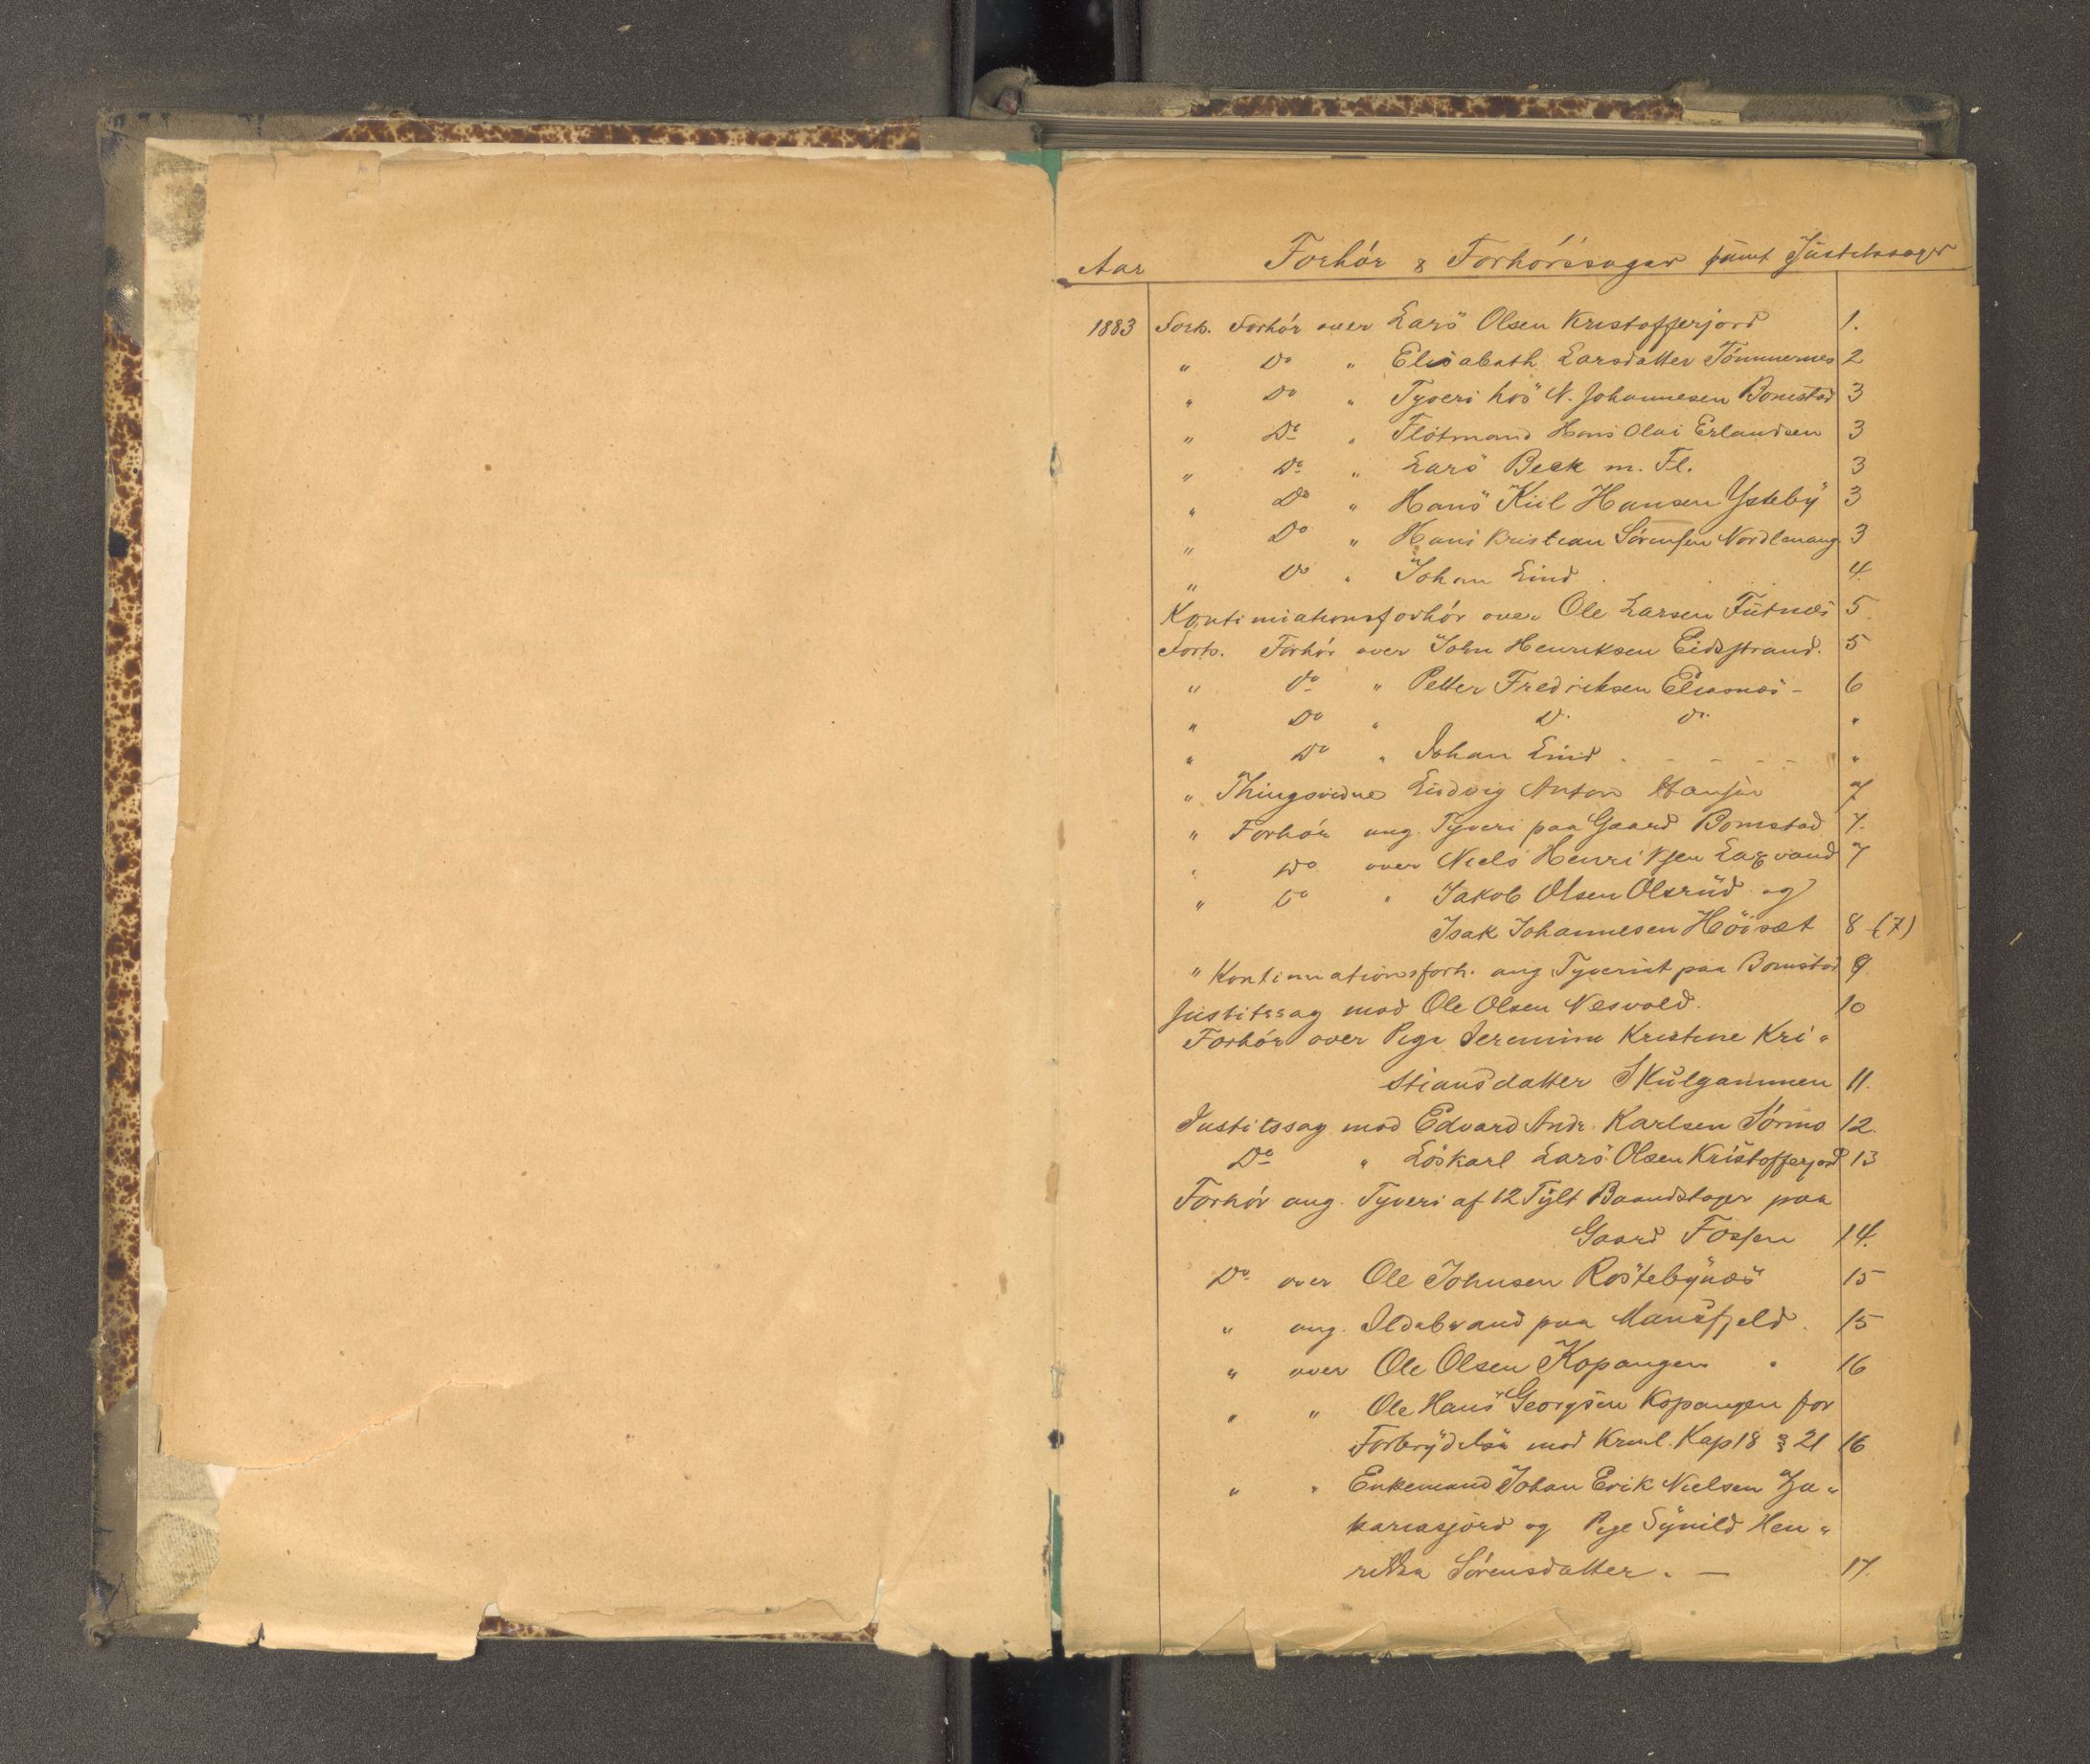 Aar Forhör & Forhörssager samt Justitssager
1883 Forts. Forhör over Lars Olsen Kristofferjord 1.
" Do " Elisabeth Larsdatter Tömmernes 2
" Do " Tyveri hos N. Johannesen Bomstad 3
" Do " Flötmand Hans Olai Erlandsen 3
" Do " Lars Beck m. Fl. 3
" Do " Hans Kiil Hansen Ysteby 3
" Do " Hans Kristian Sörensen Nordlenang 3
" Do " Johan Lind 4.
Kontinuationsforhör over Ole Larsen Futnæs 5.
Forts. Forhör over John Henriksen Eidsstrand. 5
" Do " Petter Fredriksen Eliasnæs - 6
" Do " Do Do "
" Do " Johan Lind - - - - - "
" Thingsvidne Ludvig Anton Hansen 7
" Forhör ang. Tyveri paa Gaard Bomstad 7.
" Do over Niels Henriksen Laxvand 7
" Do " Jakob Olsen Olsrud og
Isak Johannesen Höisæt 8 (7)
" Kontinuationsforh. ang Tyveriet paa Bomstad 9.
Justitssag mod Ole Olsen Nesvold. 10
Forhör over Pige Jeremine Kristine Kri"
stiansdatter Skulgammen 11.
Justitssag mod Edvard Andr. Karlsen Sörmo 12.
Do " Löskarl Lars Olsen Kristofferjord 13
Forhör ang. Tyveri af 12 Tylt Baandstager paa
Gaard Fossen 14.
Do over Ole Johnsen Rostebynæs 15
" ang. Ildebrand paa Mansfjeld. 15
" over Ole Olsen Kopangen " 16
" " Ole Hans Georgsen Kopangen for
Forbrydelse mod Kriml. Kap 18 § 21 16
" " Enkemand Johan Erik Nielsen Za"
kariasjord og Pige Synild Hen"
rikka Sörensdatter. — 17.